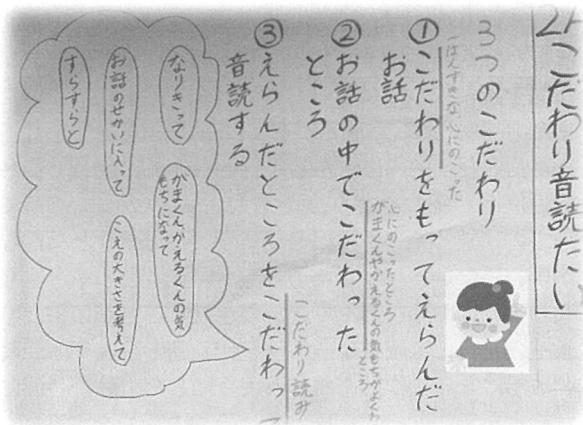 こだわり音読たい
3つのこだわり
一ばんすきな、心にのこった
①こだわりをもってえらんだ
お話
心にのこったところ
がまくんやかえるくんの気もちがよくわ
ところ
②お話の中でこだわった
ところ
こだわり読み
③えらんだところをこだわっ
音読する
なりきって
がまくん、かえるくんの気
もちになって
お話のせかいに入って
こえの大きさを考えて
すらすらと